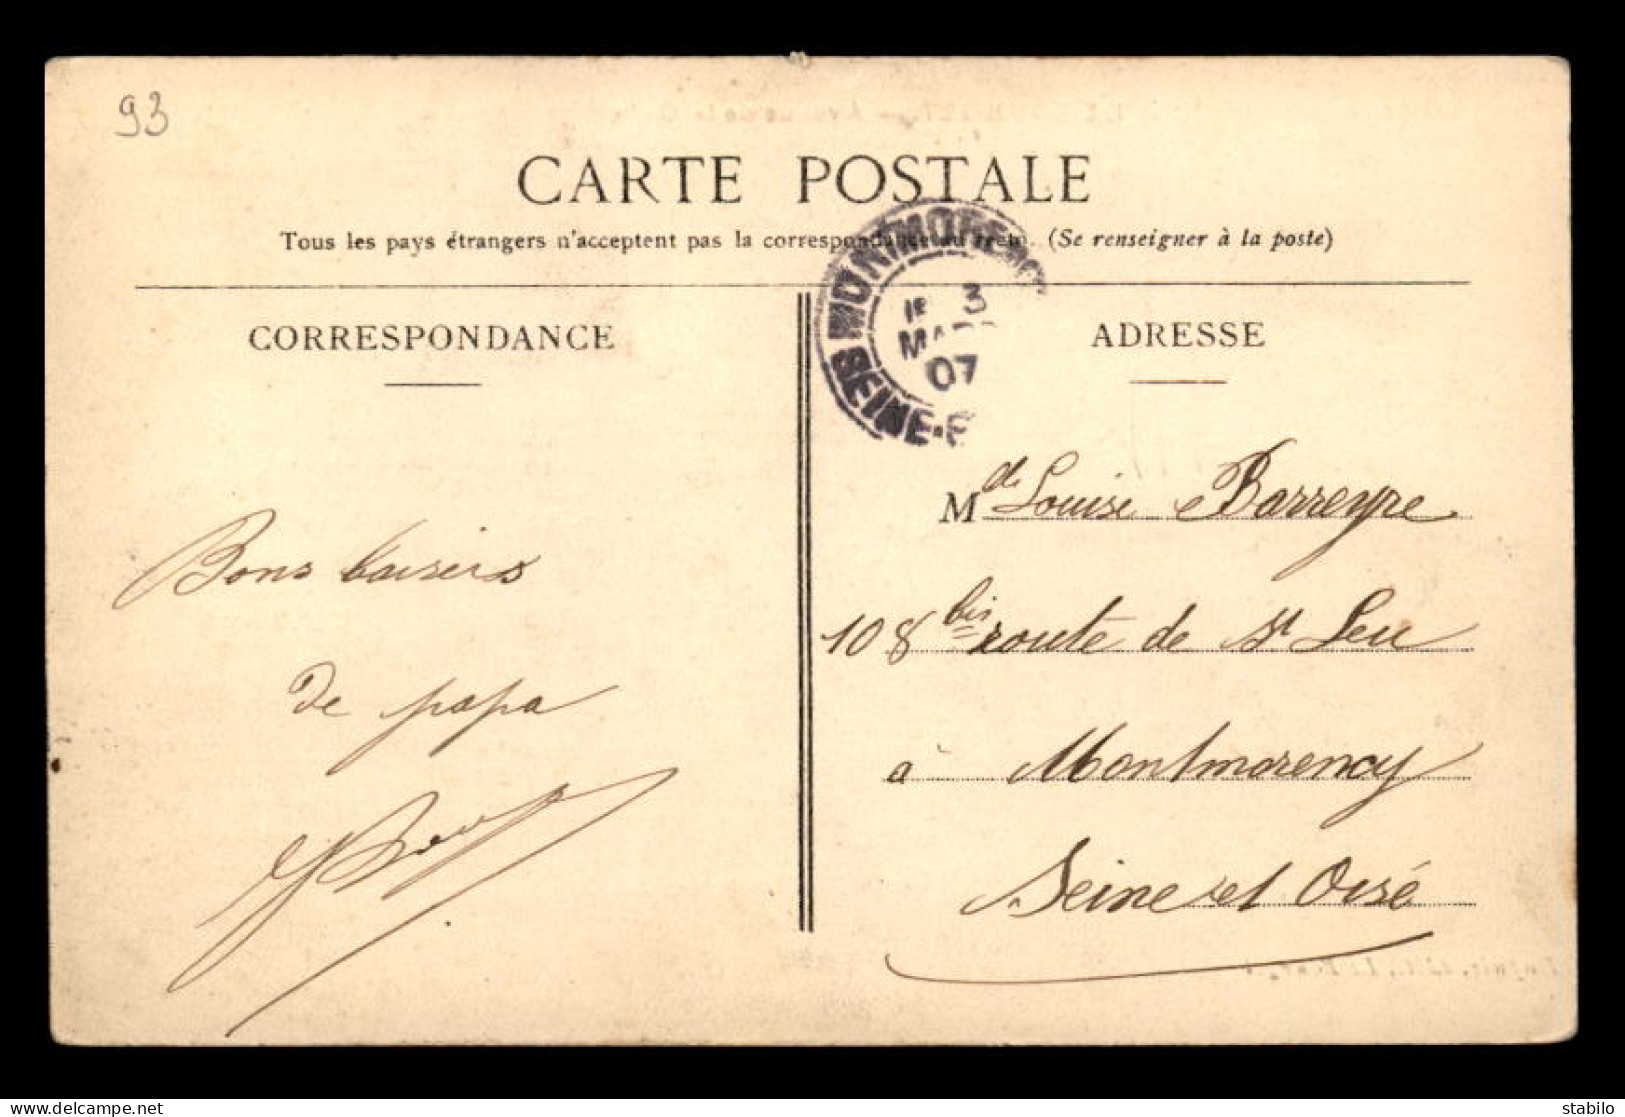 93
CARTE POSTALE
Tous les pays étrangers n'acceptent pas la correspondance au recto. (Se renseigner à la poste)
MONTMORENCY
3
MARS
07
SEINE-E
CORRESPONDANCE
ADRESSE
Bons baisers
de papa
Mde Louise Barreyre
108 bis route de St Leu
à Montmorency
Seine et Oise
delcampe.net
stabilo